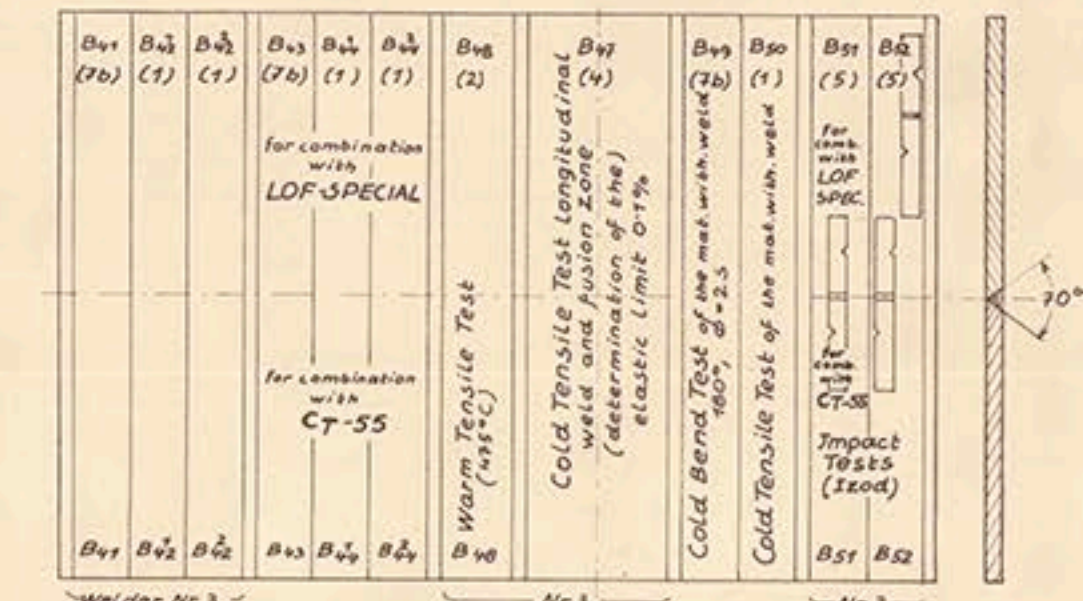 B41 B¹42 B²42 B43 B¹44 B²44 B48 B47 B49 B50 B51 B52
(7b) (1) (1) (7b) (1) (1) (2) (4) (7b) (1) (5) (5)
for combination
with
LOF-SPECIAL
for combination
with
CT-55
Warm Tensile Test
(475°C)
Cold Tensile Test longitudinal
weld and fusion zone
(determination of the)
elastic limit 0.1%
Cold Bend Test of the mat.with.weld
180°, d=2.s
Cold Tensile Test of the mat.with.weld
for
comb.
with
LOF
SPEC.
for
comb.
with
CT-55
Impact
Tests
(Izod)
70°
B41 B¹42 B²42 B43 B¹44 B²44 B48 B51 B52
Welder Nr